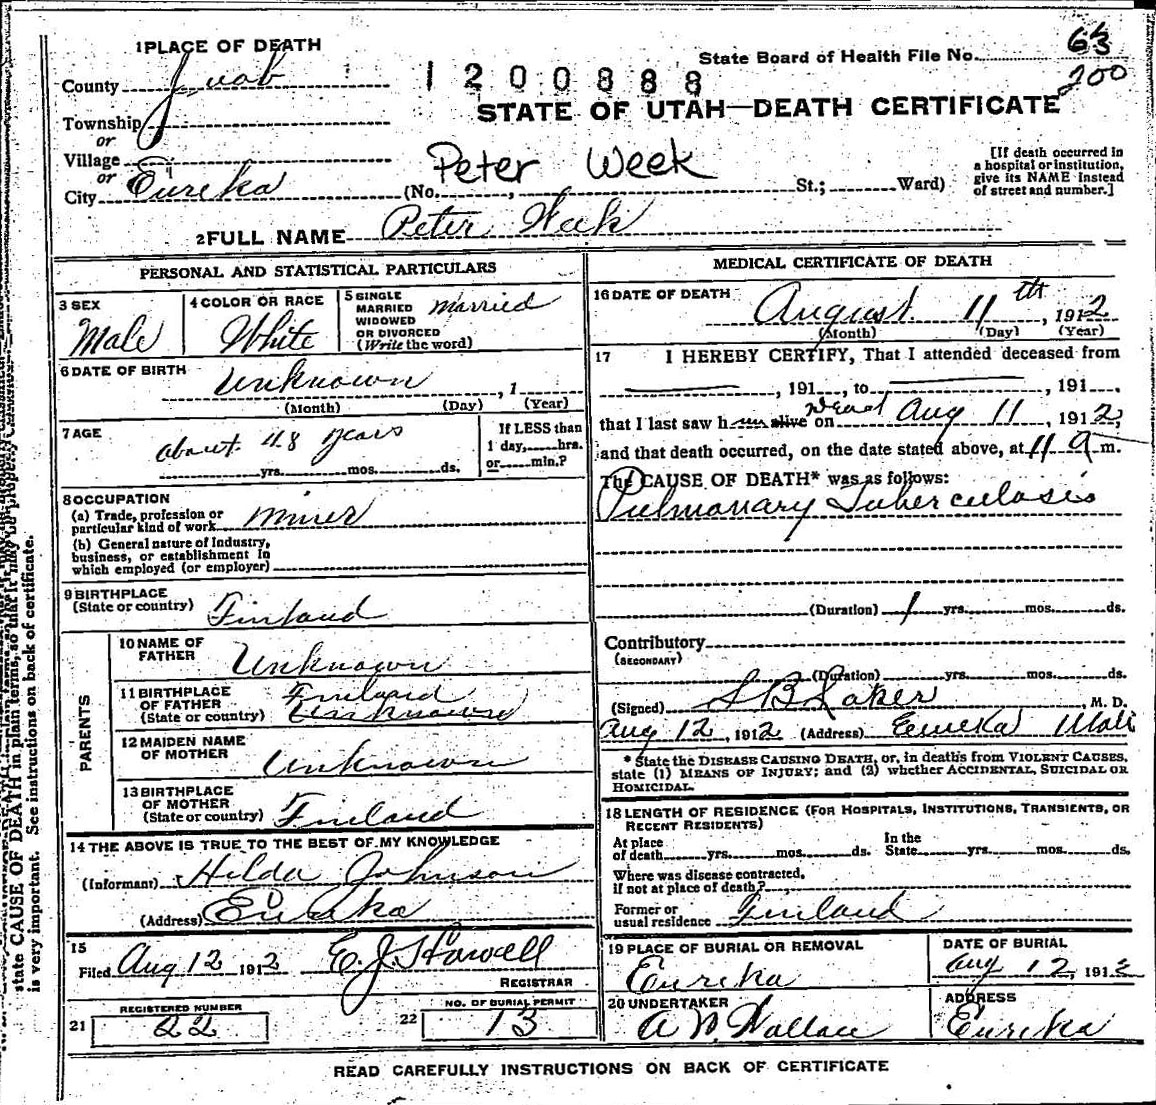 1 PLACE OF DEATH
County Juab
1200888
State Board of Health File No. 63
200
STATE OF UTAH—DEATH CERTIFICATE
Township
or
Village
or
City Eureka
Peter Week
(No. , St.; Ward)
[If death occurred in
a hospital or institution,
give its NAME instead
of street and number.]
2 FULL NAME Peter Week
PERSONAL AND STATISTICAL PARTICULARS
3 SEX
Male
4 COLOR OR RACE
White
5 SINGLE
MARRIED
WIDOWED
OR DIVORCED
(Write the word)
Married
6 DATE OF BIRTH
Unknown , 1
(Month) (Day) (Year)
7 AGE
about 48 years
yrs. mos. ds.
If LESS than
1 day, hrs.
or min.?
8 OCCUPATION
(a) Trade, profession or
particular kind of work Miner
(b) General nature of Industry,
business, or establishment in
which employed (or employer)
9 BIRTHPLACE
(State or country) Finland
PARENTS
10 NAME OF
FATHER Unknown
11 BIRTHPLACE
OF FATHER
(State or country)
Finland
Unknown
12 MAIDEN NAME
OF MOTHER Unknown
13 BIRTHPLACE
OF MOTHER
(State or country) Finland
14 THE ABOVE IS TRUE TO THE BEST OF MY KNOWLEDGE
(Informant) Hilda Johnson
(Address) Eureka
15
Filed Aug 12 1912 E. J. Howell
REGISTRAR
21 REGISTERED NUMBER
22
22 NO. OF BURIAL PERMIT
13
MEDICAL CERTIFICATE OF DEATH
16 DATE OF DEATH
August 11th , 1912
(Month) (Day) (Year)
17 I HEREBY CERTIFY, That I attended deceased from
, 191 , to , 191 .
that I last saw h alive on Dead Aug 11 , 1912,
and that death occurred, on the date stated above, at 11 a m.
The CAUSE OF DEATH* was as follows:
Pulmonary Tuberculosis
(Duration) 1 yrs. mos. ds.
Contributory
(SECONDARY)
(Duration) yrs. mos. ds.
(Signed) , M. D.
Aug 12 , 1912 (Address) Eureka Utah
* State the DISEASE CAUSING DEATH, or, in deaths from VIOLENT CAUSES,
state (1) MEANS OF INJURY; and (2) whether ACCIDENTAL, SUICIDAL OR
HOMICIDAL.
18 LENGTH OF RESIDENCE (FOR HOSPITALS, INSTITUTIONS, TRANSIENTS, OR
RECENT RESIDENTS)
At place
of death yrs. mos. ds.
In the
State yrs. mos. ds.
Where was disease contracted,
if not at place of death?
Former or
usual residence Finland
19 PLACE OF BURIAL OR REMOVAL
Eureka
DATE OF BURIAL
Aug 12, 1912
20 UNDERTAKER
A N Wallace
ADDRESS
Eureka
READ CAREFULLY INSTRUCTIONS ON BACK OF CERTIFICATE
state CAUSE OF DEATH in plain terms, so that it may be properly
is very important. See instructions on back of certificate.